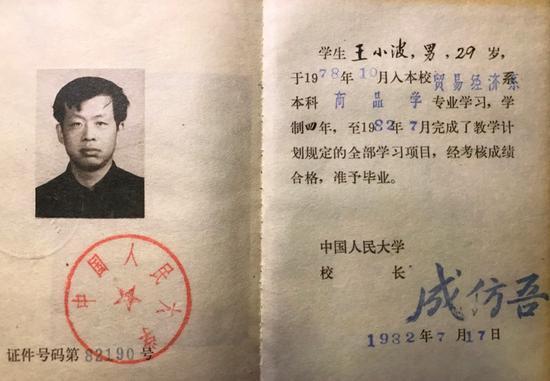 中国人民大学
证件号码第 82190 号
学生 王小波，男，29 岁，
于1978年10月入本校贸易经济系
本科 商品学 专业学习，学
制四年，至1982年7月完成了教学计
划规定的全部学习项目，经考核成绩
合格，准予毕业。
中国人民大学
校 长 成仿吾
1982年7月17日